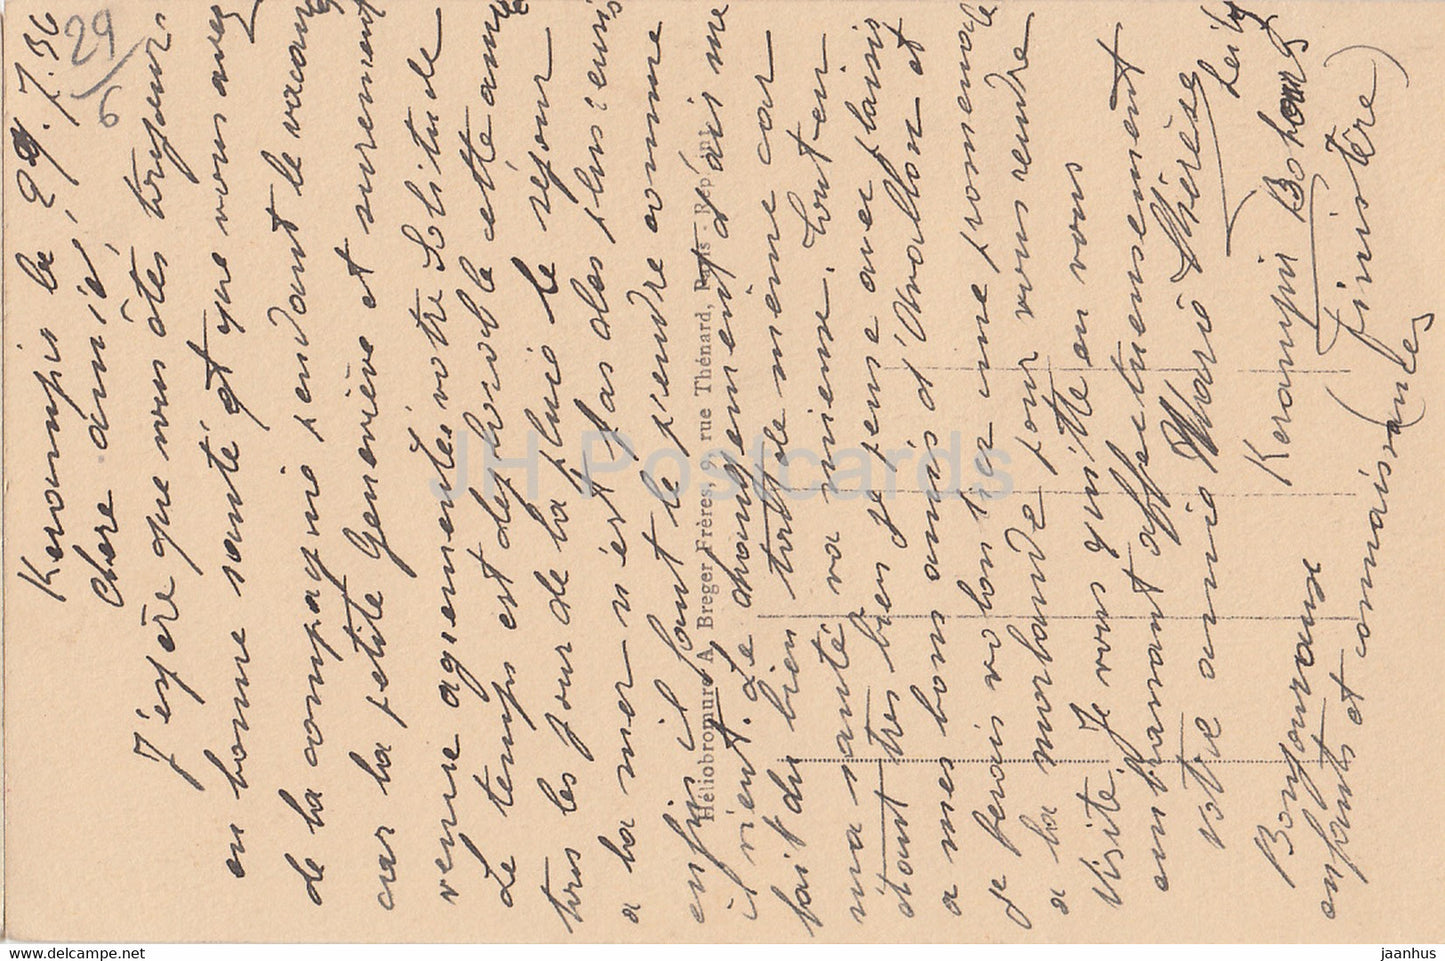 Keroumpir le 29.7.36
29/6
Chère amie,
J'espère que vous êtes toujours
en bonne santé et que vous avez
de la compagnie pendant le vacances
car la petite Geneviève est surement
venue agrementés votre Solitude
Le temps est deplorable cette année
tous les jour de la pluie le séjour
a la mer n'est pas des plus
enfin il faut le prendre comme
il vient. Le changement d'air me
fait du bien tout de meme car
ma santé va mieux. Tout en
étant tres bien je pense avec plaisir
a mes bons amis d'Avallon et
je ferais volontier une promenade
a la pour vous rendre
visite. Je vous quitte en vous
embrassant affectueusement
votre amie Marie Thérèse
Bonjour aux
enfants et connaissances
Finistère)
Héliobromure A. Breger Frères, 9, rue Thénard, Paris
JH Postcards
www.hippostcard.com
jaanhus